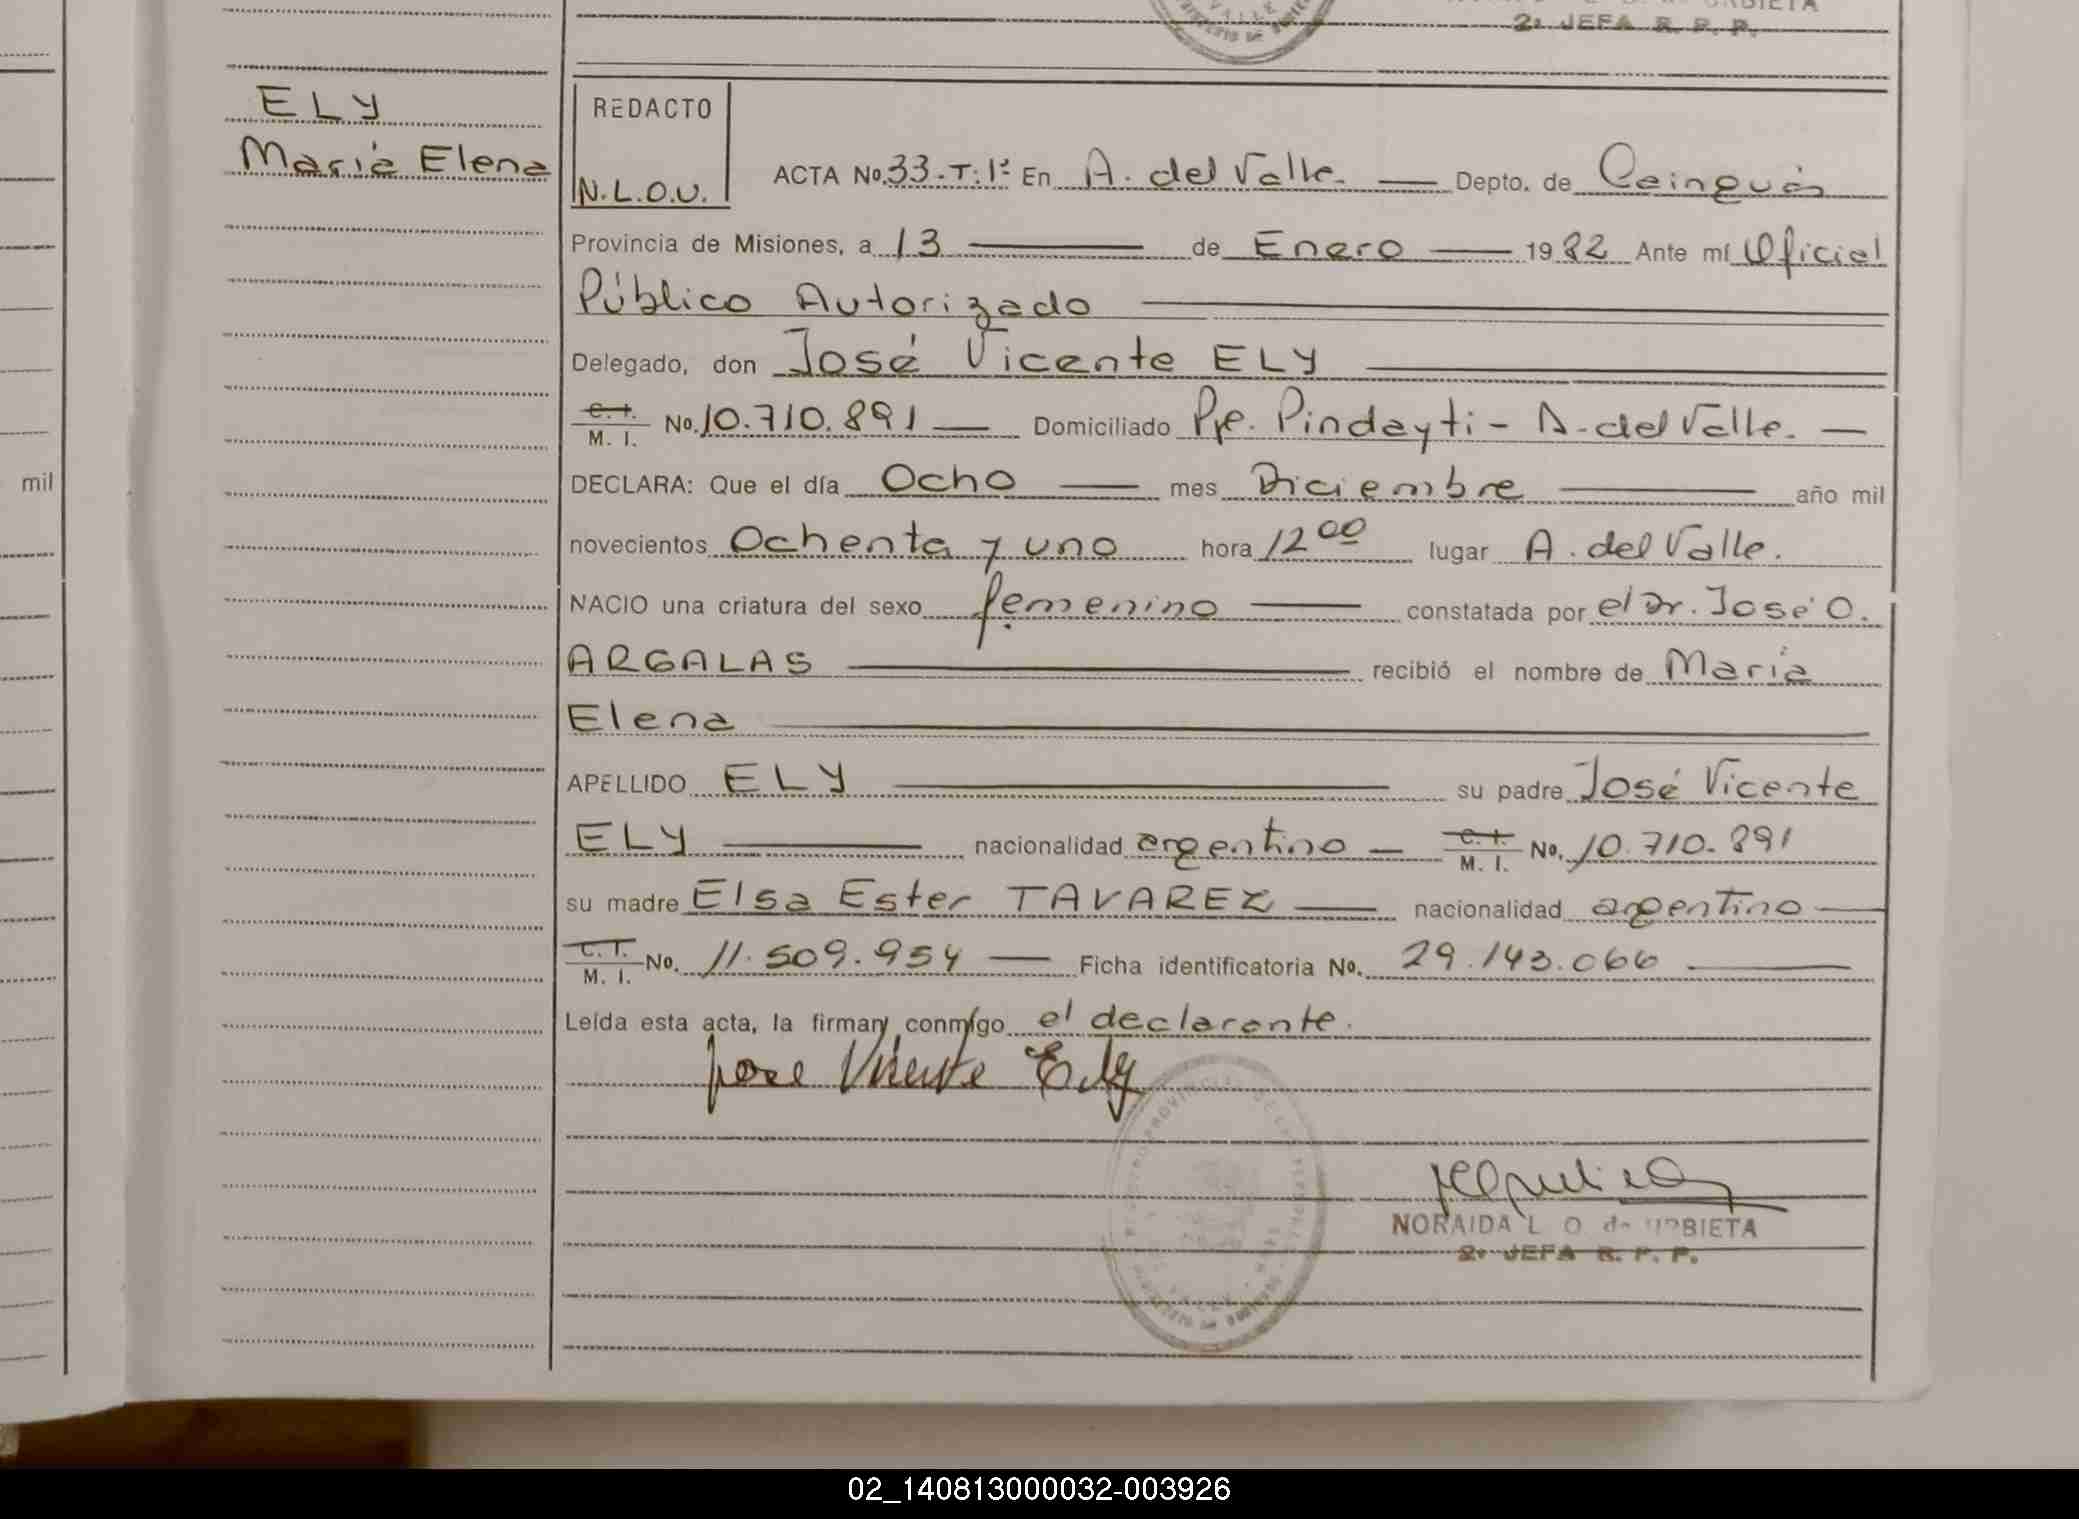 2º JEFA R. P. P.
ELY
María Elena
REDACTO
N.L.O.U.
ACTA No. 33.T:1º En A. del Valle. Depto. de Cainguás
Provincia de Misiones, a 13 de Enero 1982 Ante mí Oficial
Público Autorizado
Delegado, don José Vicente ELY
C. I. M. I. No. 10.710.891 Domiciliado Pje. Pindayti - A. del Valle.
mil
DECLARA: Que el día Ocho mes Diciembre año mil
novecientos Ochenta y uno hora 12 00 lugar A. del Valle.
NACIO una criatura del sexo femenino constatada por el Dr. José O.
ARGALAS recibió el nombre de María
Elena
APELLIDO ELY su padre José Vicente
ELY nacionalidad argentino C. I. M. I. No. 10.710.891
su madre Elsa Ester TAVAREZ nacionalidad argentino
C. I. M. I. No. 11.509.954 Ficha identificatoria No. 29.143.066
Leída esta acta, la firman conmigo el declarante.
Jose Vicente Ely
NORAIDA L O de URBIETA
2º JEFA R. P. P.
02_140813000032-003926